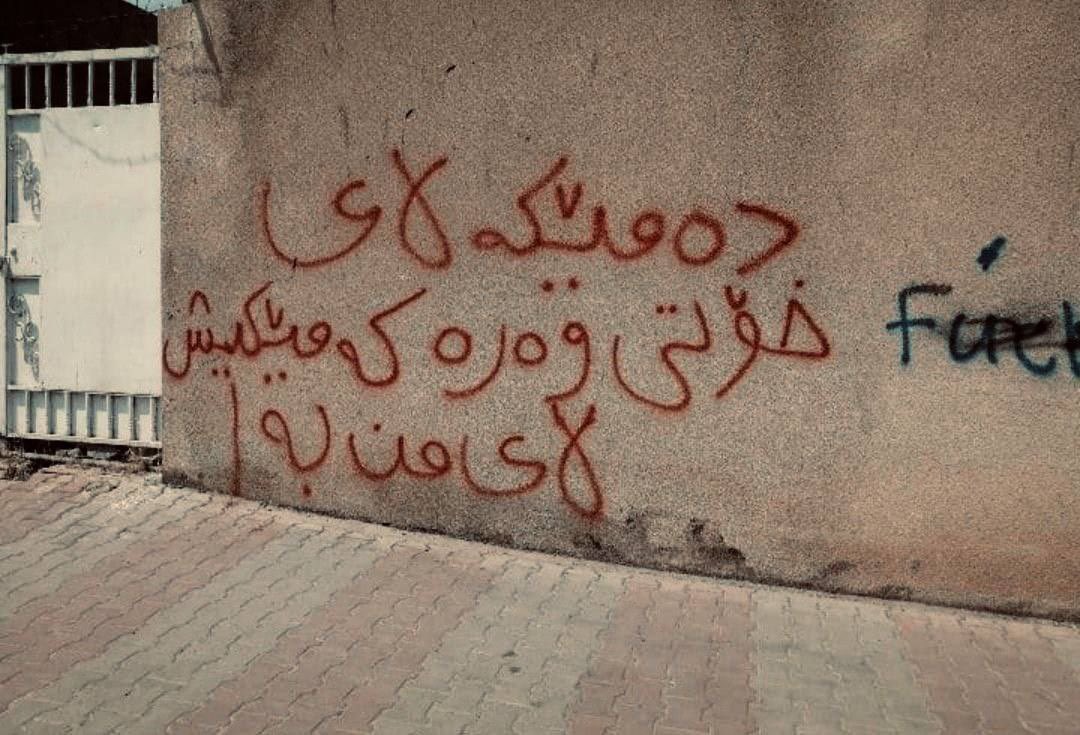 دەمێکە لای
خۆتی وەرە کەمێکیش
لای من بە !